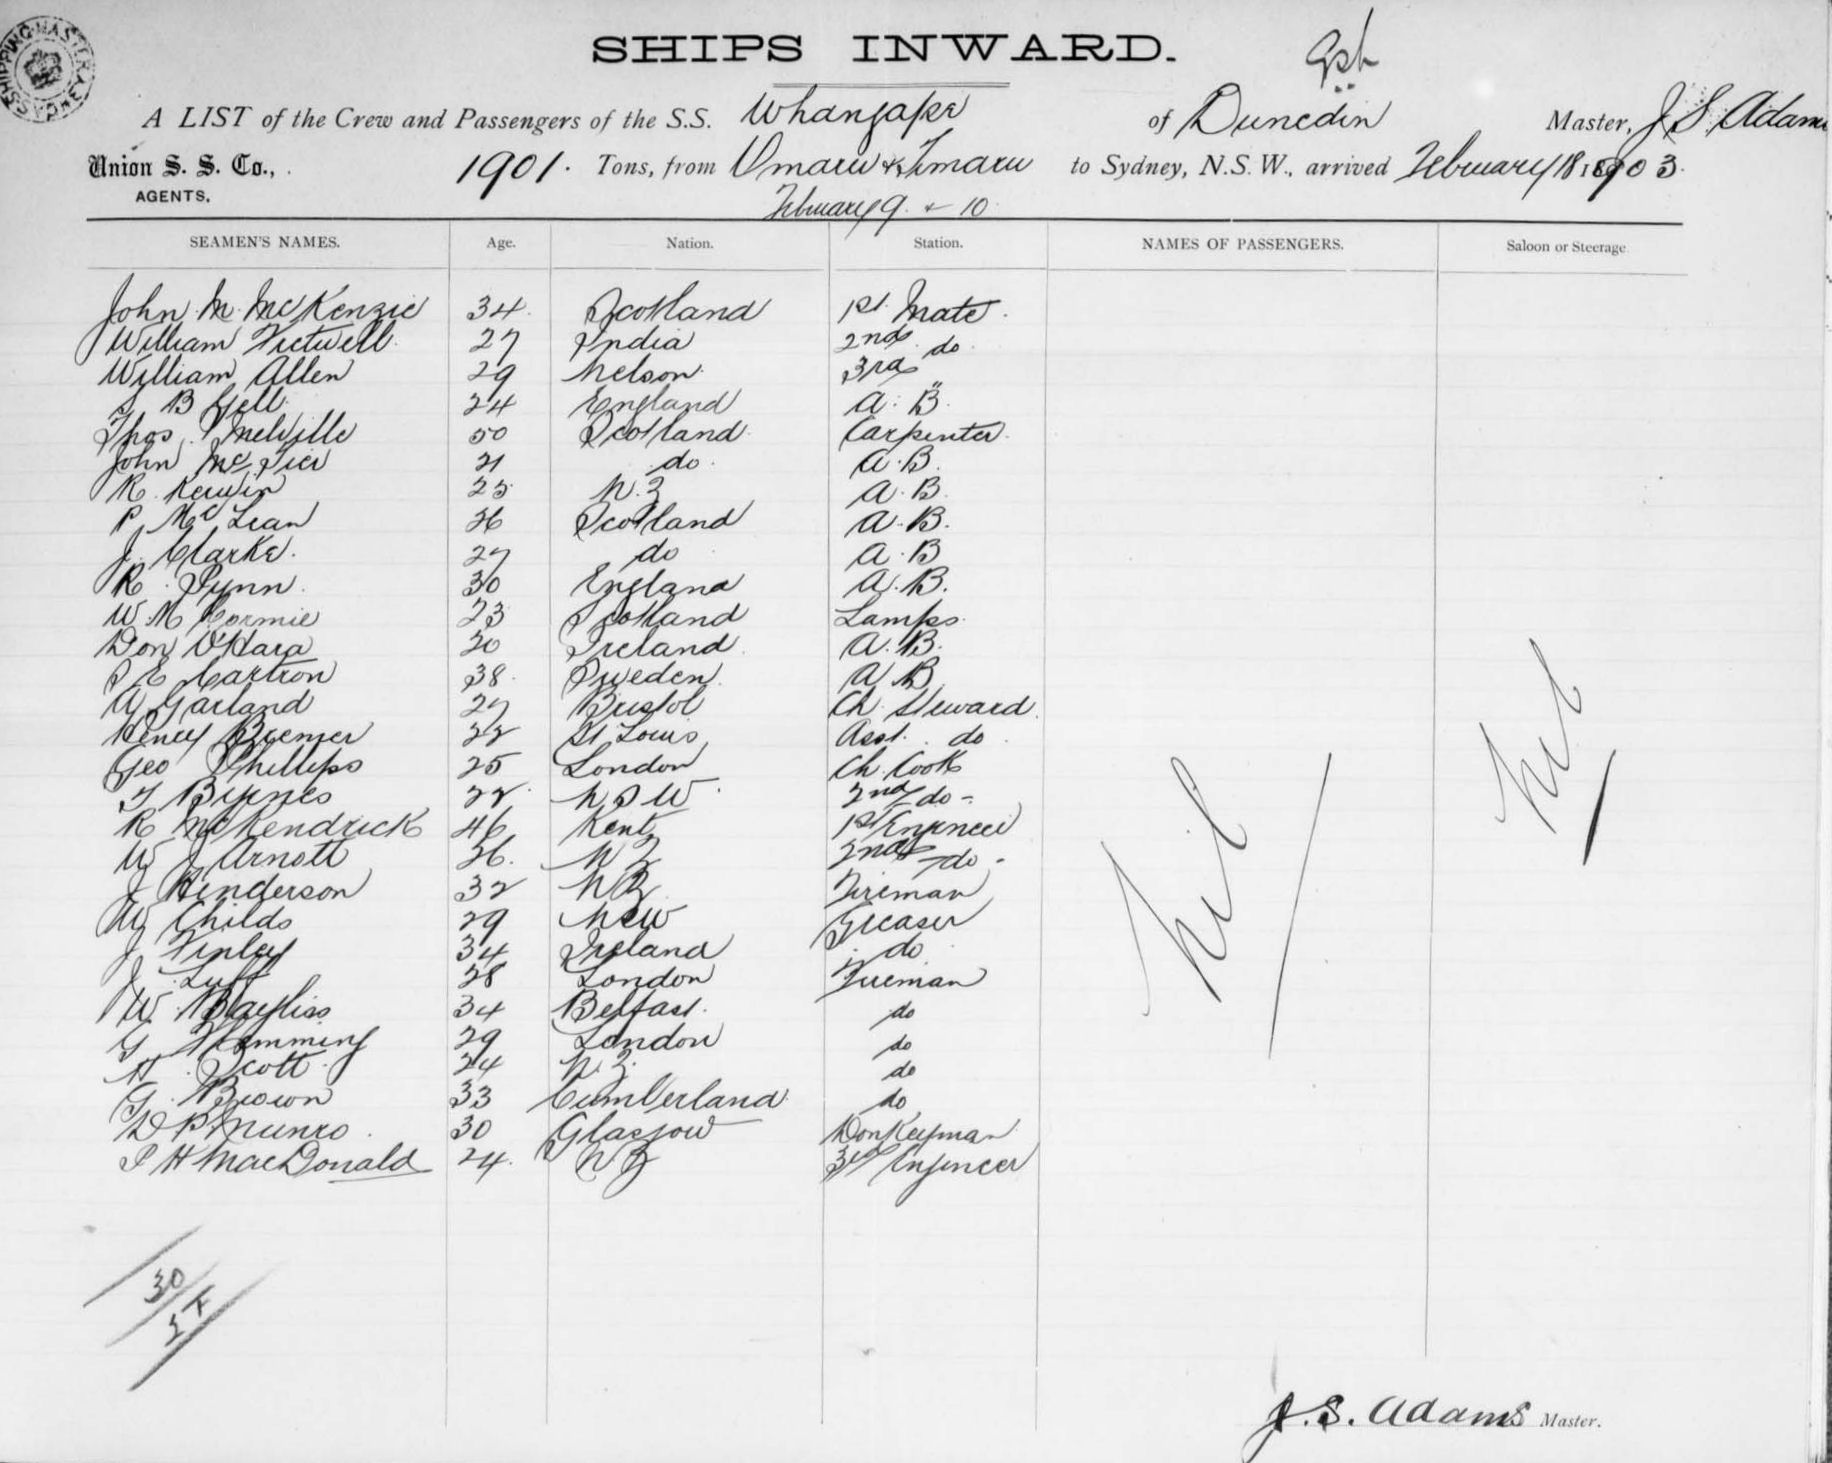 SHIPS INWARD.
A LIST of the Crew and Passengers of the S.S. Whangape of Dunedin Master, J S. Adams
Union S. S. Co., 1901. Tons, from Omaru & Timaru to Sydney, N.S.W., arrived February 18 1903.
AGENTS. February 9 & 10
SEAMEN'S NAMES. Age. Nation. Station. NAMES OF PASSENGERS. Saloon or Steerage
John M. McKenzie 34 Scotland 1st. Mate.
William 27 India 2nd do
William Allen 29 Nelson 3rd "
S B Gell 24 England A. B.
Thos Melville 50 Scotland Carpenter.
John McTier 21 do. A.B.
R. Kerwin 25 N.Z A.B.
P McLean 26 Scotland A.B.
J. Clarke. 27 do A.B
R. Flynn 30 England A.B.
W McCormie 23 Scotland Lamps
Don O'Hara 20 Ireland A.B.
S E Cartron 38 Sweden A B
A Garland 27 Bristol Ch Steward.
Henry Bremer 22 St Louis Asst. do
Geo Phillips 25 London Ch. Cook
T Byrnes 22 N S W 2nd do -
R McKendrick 46 Kent 1st Engineer
W J Arnott 26. N Z 2nd do -
J Henderson 32 N Z Fireman
W Childs 29 NSW Greaser
J Finley 34 Ireland do
J Luff 28 London Fireman
W Bayliss 34 Belfast. do
G Flemming 29 London do
H Scott 24 N.Z. do
G. Brown 33 Cumberland do
D P Munro 30 Glasgow Donkeyman
P H MacDonald 24. N Z 3rd Engineer
Nil Nil
30
J.S. Adams Master.